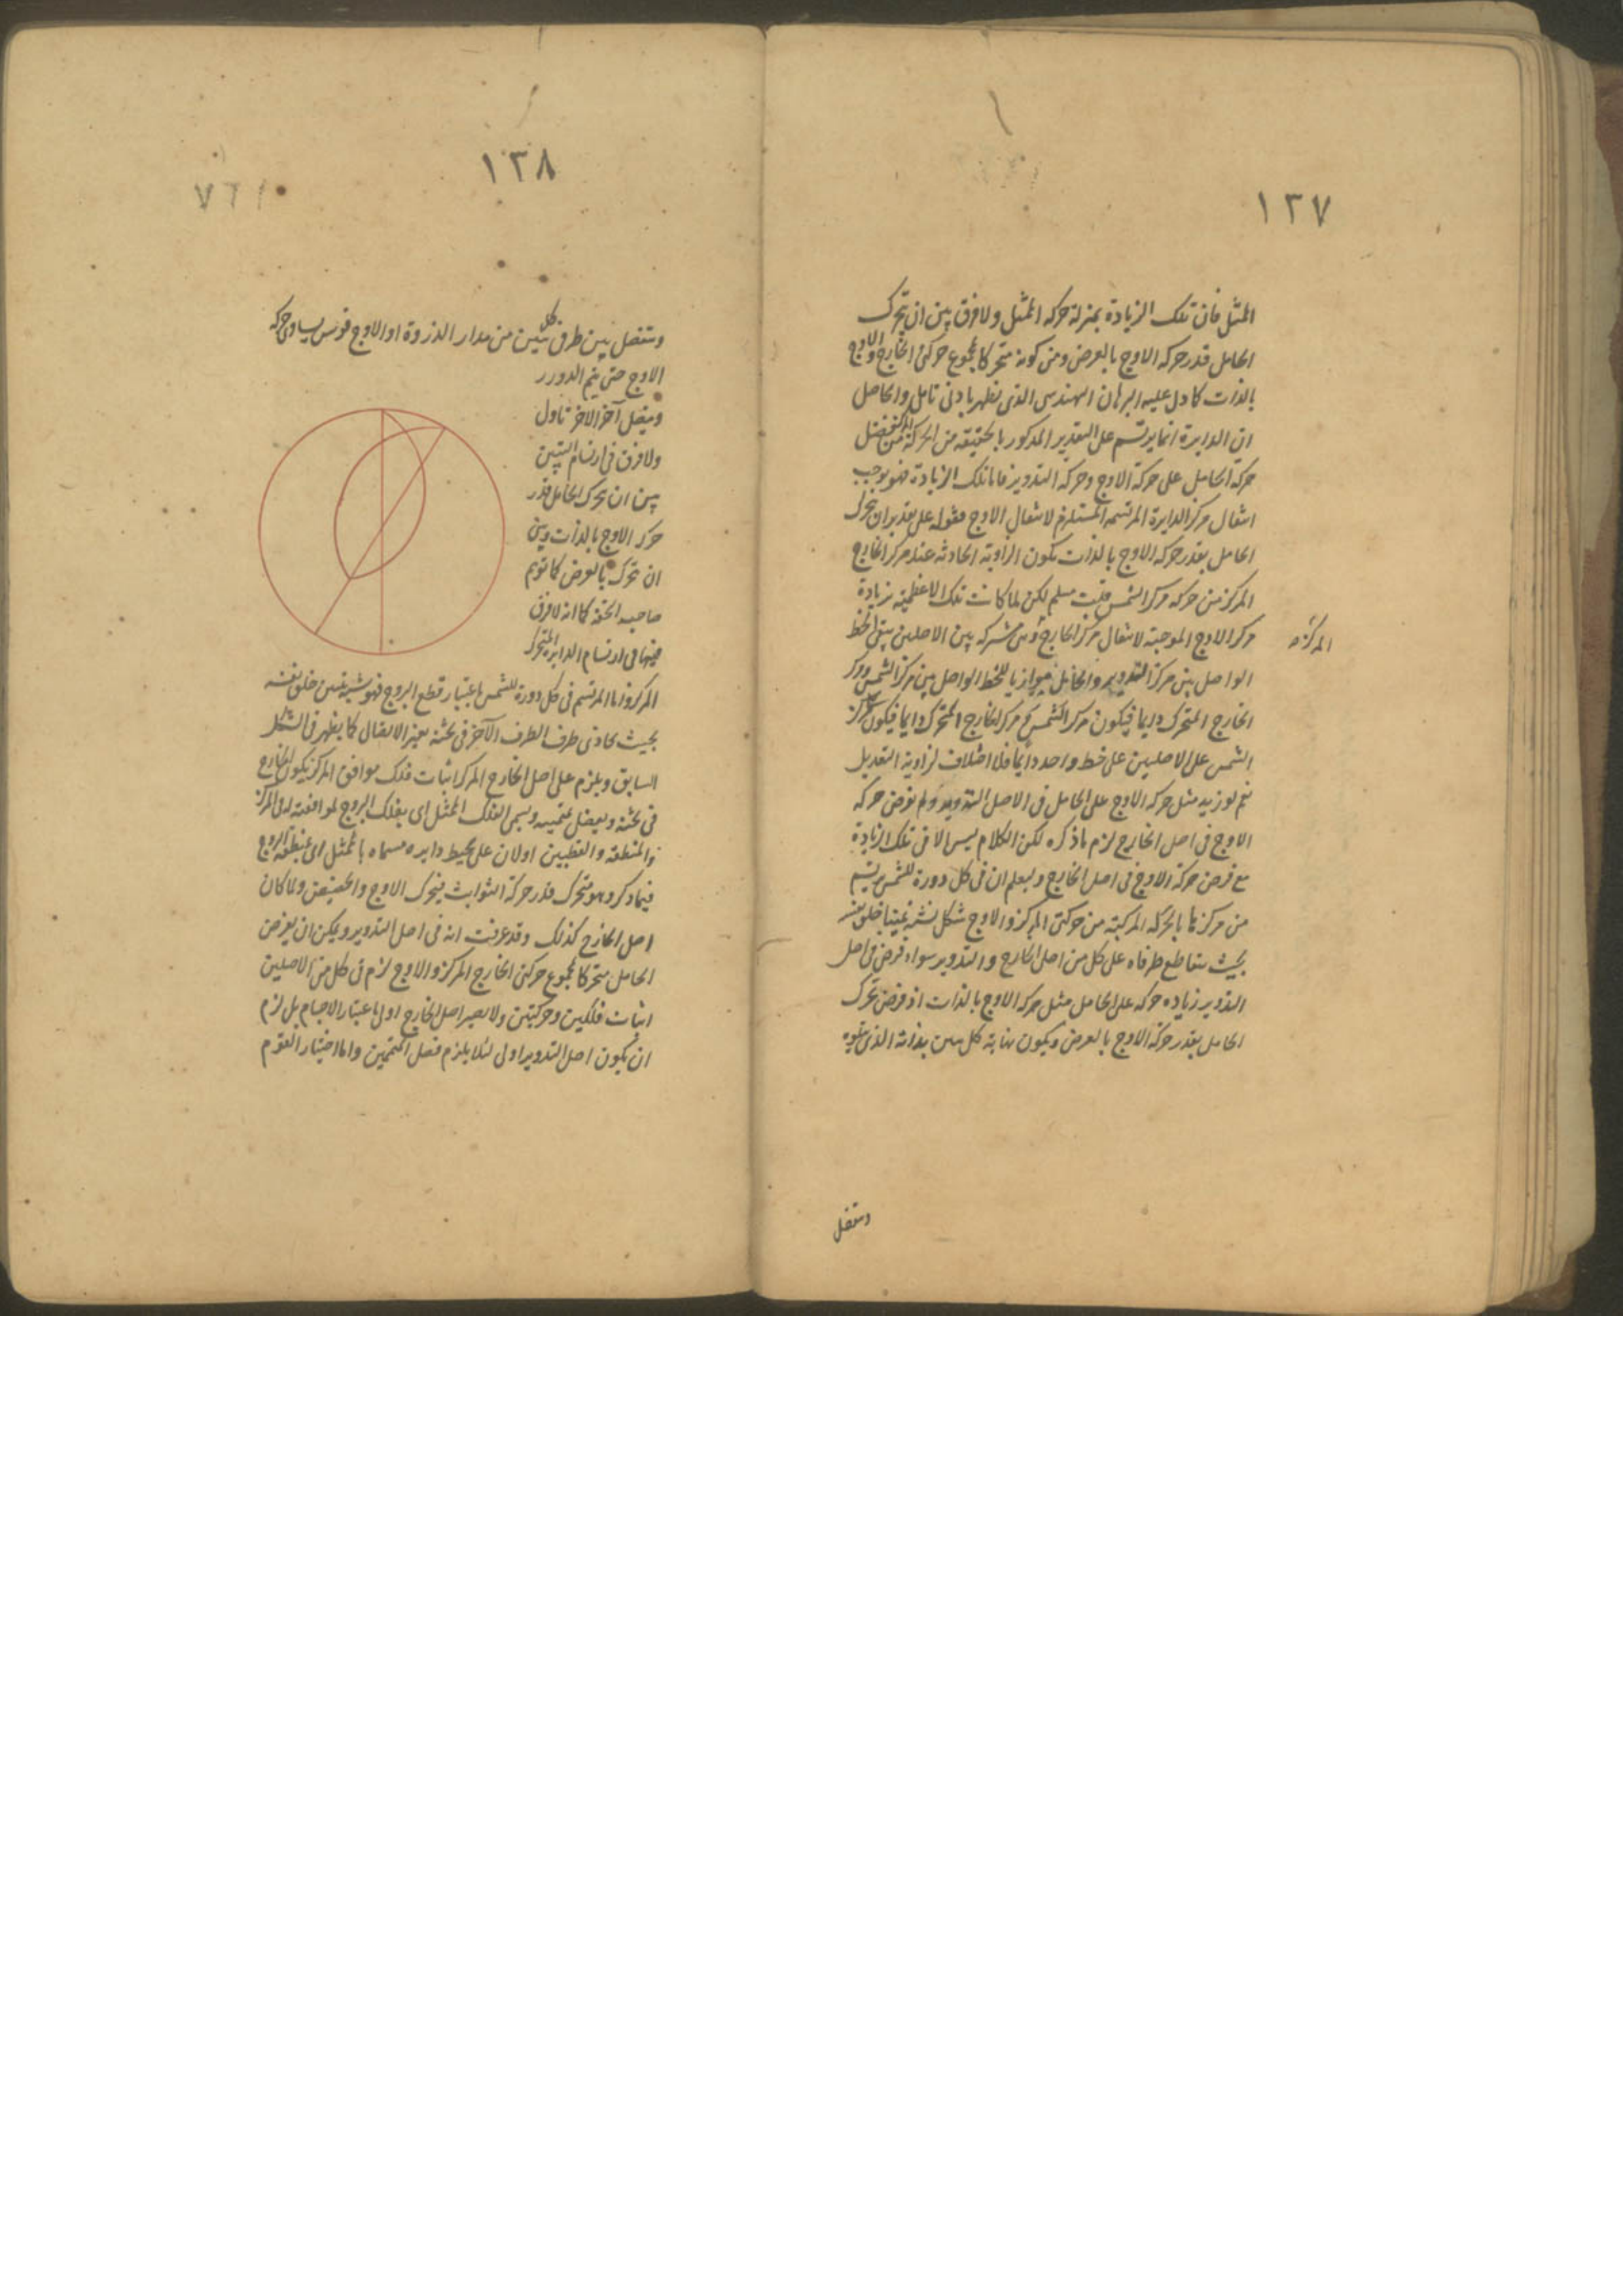 ١٢٧
الممثل فان تلك الزيادة بمنزلة حركة الممثل ولا فرق بين ان يتحرك
الحامل قدر حركة الاوج بالعرض وبين كونه متحركا بمجموع حركتى الخارج والاوج
بالذات كما دل عليه البرهان الهندسى الذى يظهر بادنى تامل والحاصل
ان الدايرة انما يرتسم على التقدير المذكور بالحقيقة من الحركة من فضل
حركة الحامل على حركة الاوج وحركة التدوير فاما تلك الزيادة فهو يوجب
انتقال مركز الدايرة المرتسمة المستلزم لانتقال الاوج فقوله على تقدير ان تحرك
الحامل بقدر حركة الاوج بالذات يكون الزاوية الحادثة عند مركز الخارج
المركز من حركة مركز الشمس قلت مسلم لكن لما كانت تلك الاعظمية بزيادة
حركة الاوج الموجبة لانتقال مركز الخارج وهى مشتركة بين الاصلين يبقى الخط
المركز
الواصل بين مركز التدوير والحامل موازيا للخط الواصل بين مركز الشمس ومركز
الخارج المتحرك دايما فيكون مركز الشمس ومركز الخارج المتحرك دايما فيكون مركز
الشمس على الاصلين على خط واحد دايما فلا اختلاف لزاوية التعديل
نعم لو زيد مثل حركة الاوج على الحامل فى الاصل التدوير ولم يفرض حركة
الاوج فى اصل الخارج لزم ما ذكره لكن الكلام ليس الا فى تلك الزيادة
مع فرض حركة الاوج فى اصل الخارج وليعلم ان فى كل دورة للشمس يرتسم
من مركزها بالحركة المركبة من حركتى المركز والاوج شكل
بحيث يتقاطع طرفاه على كل من اصل الخارج والتدوير سواء فرض فى اصل
التدوير زيادة حركة على الحامل مثل حركة الاوج بالذات او فرض تحرك
الحامل بقدر حركة الاوج بالعرض ويكون نهاية كل بداية الذى يليه
وتفضل
١٢٨
وتفضل بين طرفى كل من مدار الذروة او الاوج قوس يساوى حركة
الاوج حتى يتم الدور
ويتصل آخر الاخر باول
ولا فرق فى ارتسام
بين ان يحرك الحامل قدر
حركة الاوج بالذات وبين
ان تحرك بالعرض كما توهم
صاحب التحفة كما انه لا فرق
فيها فى ارتسام الدايرة المتحرك
المركز واما المرتسم فى كل دورة للشمس باعتبار قطع البروج فهو شبيه
بحيث يحاذى طرف الطرف الآخر فى ثخنه بغير الاتصال كما يظهر فى الشكل
السابق ويلزم على اصل الخارج المركز اثبات فلك موافق المركز يكون الخارج
فى ثخنه ويفضل متمميه ويسمى الفلك الممثل اى بفلك البروج لموافقته له فى المركز
والمنطقة والقطبين اولان على محيط دايرة مسماة بالممثل اى بمنطقة البروج
فيما ذكر وهو متحرك قدر حركة الثوابت فيتحرك الاوج والحضيض ولما كان
اصل الخارج كذلك وقد عرفت انه فى اصل التدوير ويمكن ان يفرض
الحامل متحركا بمجموع حركتى الخارج المركز والاوج لزم فى كل من الاصلين
اثبات فلكين وحركتين ولا يصير اصل الخارج اولى باعتبار الاجسام بل لزم
ان يكون اصل التدوير اولى لئلا يلزم فضل المتممين واما اختيار القوم